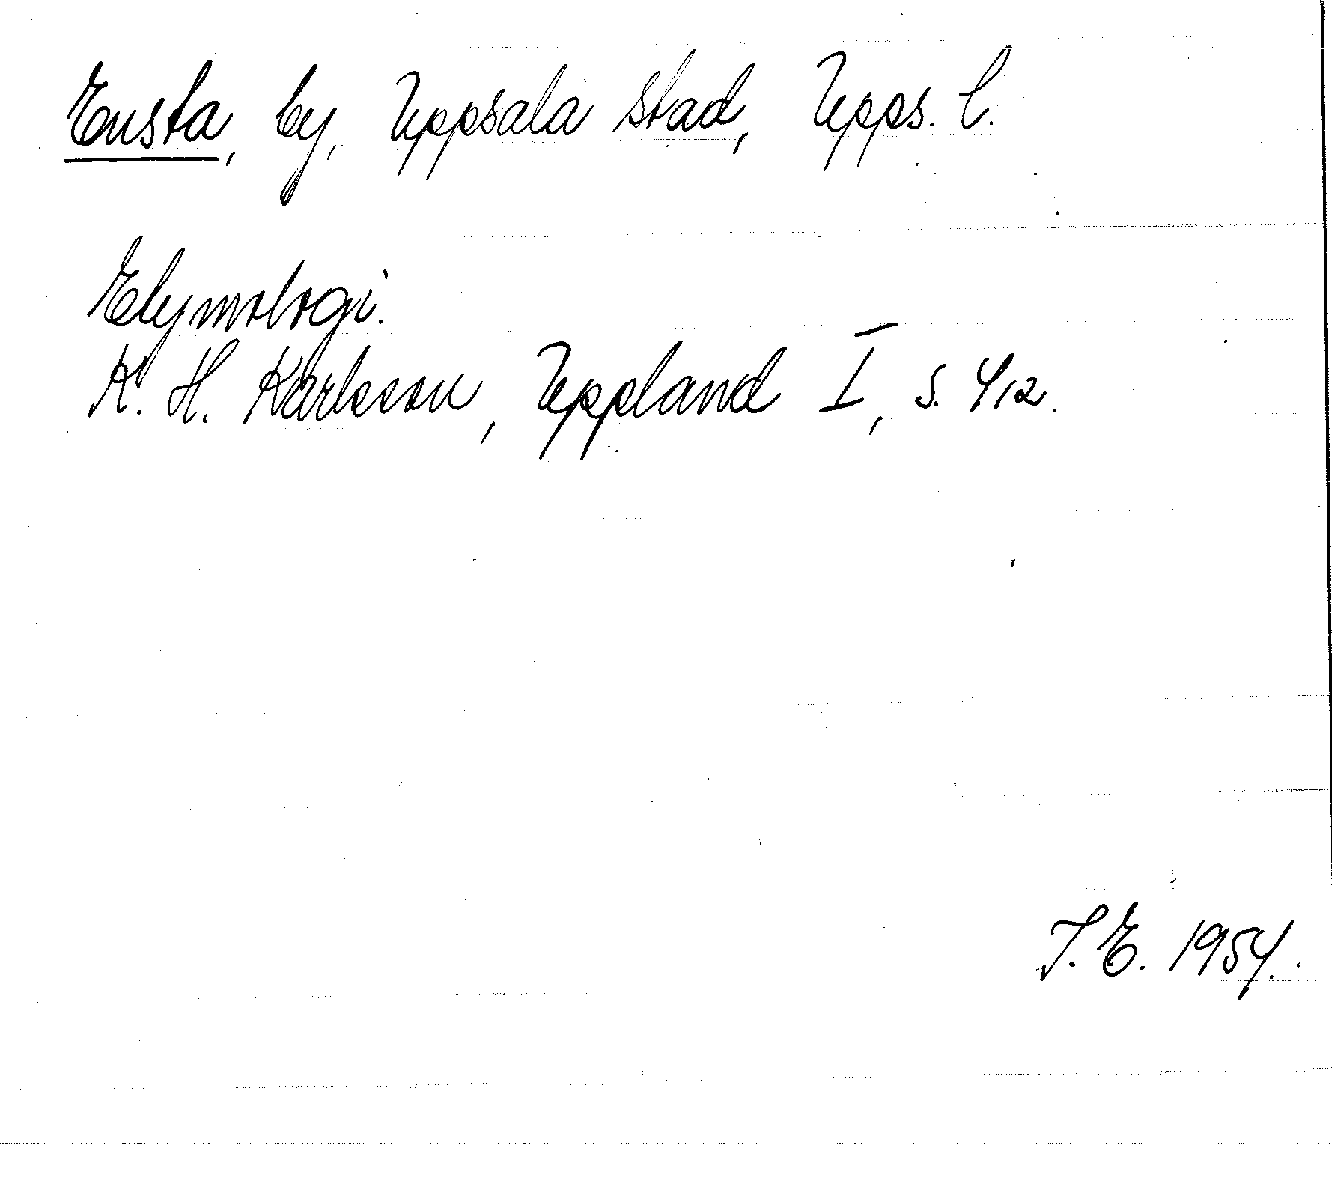 Ensta, by, Uppsala stad, Upps. l.
Etymologi.
K. H. Karlsson, Uppland I, s. 412.
J. E. 1954.